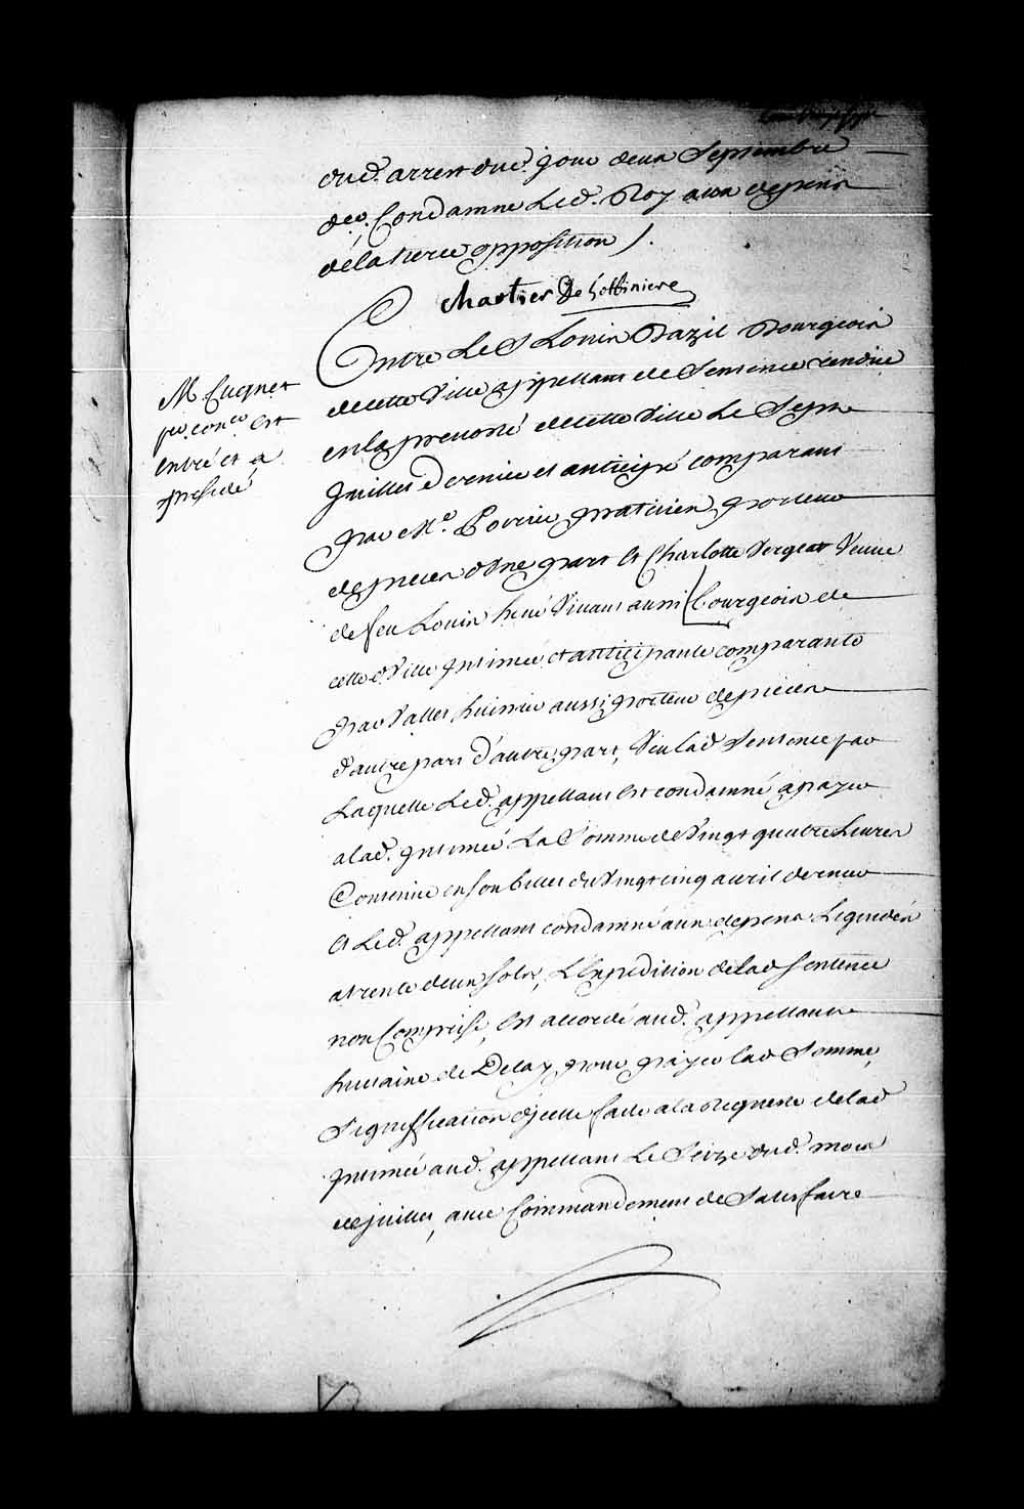 dud. arrest dud. jour deux Septembre
der. Condamne Led. Roy aux depens
de la tierce opposition /.
Chartier De Lotbiniere
Entre Le S Louis Bazil Bourgeois
de cette Ville appellant de Sentence rendüe
en la prevosté de cette Ville Le Sept
Juillet dernier et anticipé comparant
par Me. Poirier praticien porteur
de pieces d'Une part Et Charlotte Vergeat Veuve
de feu Louis René Vivant aussi bourgeois de
cette Ville Intimée et anticipante comparante
par Vallet huissier aussi porteur de pieces
d'autre part d'autre part, Veu lad Sentence par
Laquelle Led. appellant Est condamné a payer
a lad. Intimée La Somme de Vingt quatre Livres
Contenüe en son billet du Vingt cinq avril dernier
Et Led. appellant condamné aux depens Liquidés
a trente deux sols, L'Expedition de lad sentence
non Comprise, Est accordé aud. appellant
huitaine de Delay pour payer lad Somme,
Signiffication d'jcelle faite a la Requeste de lad
Intimée aud. appellant Le Seize dud. mois
de juillet, avec Commandement de Satisfaire
M. Cugnet
per. conser Est
Entré et a
presidé